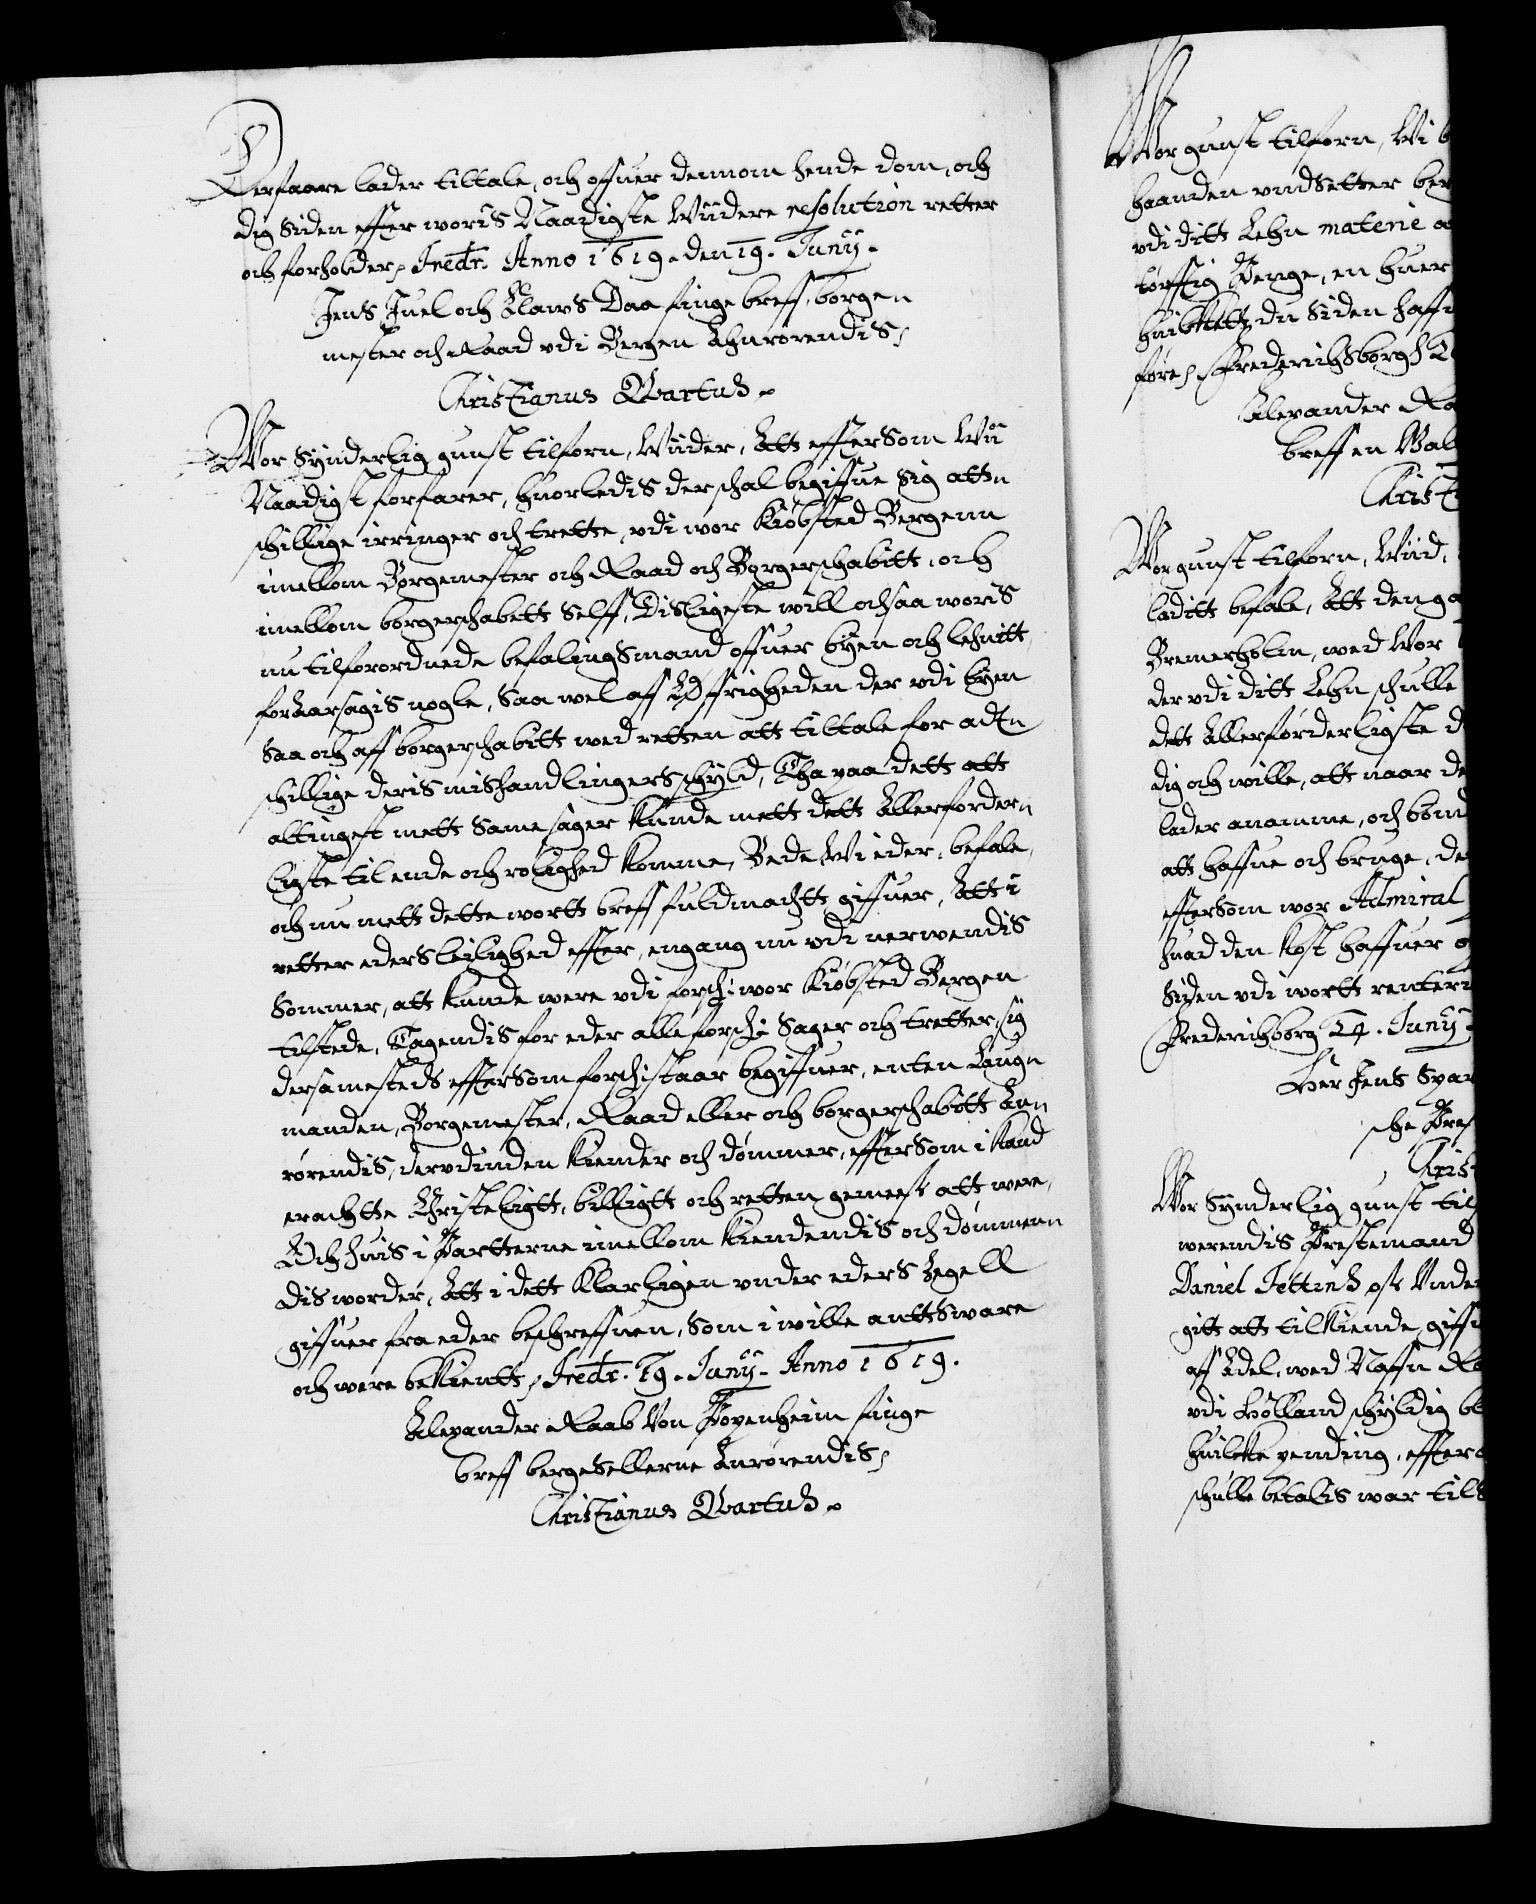 Derfaare lader tiltale, och offuer dennom hende dom, och
dig siden effter woris Naadigste Wiidere resolution retter
och forholder, Fredr. Anno 1619. den 19. Juny.
Jens Juel och Klaws Daa finge breff, borge
mester och Raad vdi Bergen Ahnrørendis,
Christianus Qvartus.
Wor Synderlig gunst tilforn, Wiider, Att effter Som Wii
Naadigst forfarer, huorledis der schal begiffue sig att
schillige irringer och trette, vdi wor Kiøbsted Bergenn
imellom Borgemester och Raad och Borgerschabitt, och
imellom borgerschabett Selff, Disligeste will ochsaa woris
nu tilforordnede befalingsmand offuer byen och lehnitt,
foraarsagis nogle, saa wel aff Øffrigheden der vdi byen
saa och aff borgerschabitt wed retten att tiltale for adt
schillige deris mishandlingers schyld, Tha paa dett att
altingest mett Same sager kunde mett dett Allerforder
ligste til ende och rolighed komme, Bede Wi eder, befale,
och nu mett dette wortt breff fuldmachtt giffuer, Att i
retter eders leilighed effter, engang nu vdi nerwerendis
Sommer, att kunde were vdi forschi: wor Kiøbsted Bergen
tilstede, Tagendis for eder alle forschi: Sager och tretter, sig
dersamesteds effter som forschi staar begiffuer, enten Laug
manden, Borgemester, Raad eller och borgerschabitt An
rørendis, dervdinden kiender och dømmer, effter Som i kand
erachtte Christeligtt, billigtt och retten gemeess att were,
Och huis i Partterne imellom kiendendis och dømmenn
dis worder, Att i dett klarligen vnder eders Zegell
giffuer fra eder beschreffuen, Som i wille anttsware
och were bekientt, Fredr. 19. Juny. Anno 1619.
Alexander Raab Von Papenheim finge
breff bergsellerne Anrørendis,
Christianus Qvartus.
Wor gunst tilforn, Wi
haanden vndsetter
vdi ditt Lehn materie
tørffig Penge, en huer
huilkett du siden
føre, Fredericksborgh
Alexander
breff en
Christ
Wor gunst tilforn, Wiid,
laditt befale, Att
Bremerholm, wed Wor
der vdi ditt Lehn schulle
dett Allerførderligste
dig och wille, att naar
lader anamme, och
att haffue och bruge,
effter som wor Admiral
huad den kost haffuer
Siden vdi wortt
Frederichborg 24. Juny.
Her Jens
sche
Christ
Wor Synderlig gunst
werendis Prestemand
Daniel Jettinch
gitt att tilkiende
aff Adel, wed Naffn
vdi Holland schyldig
huilcke pending, effter
schulle betalis war